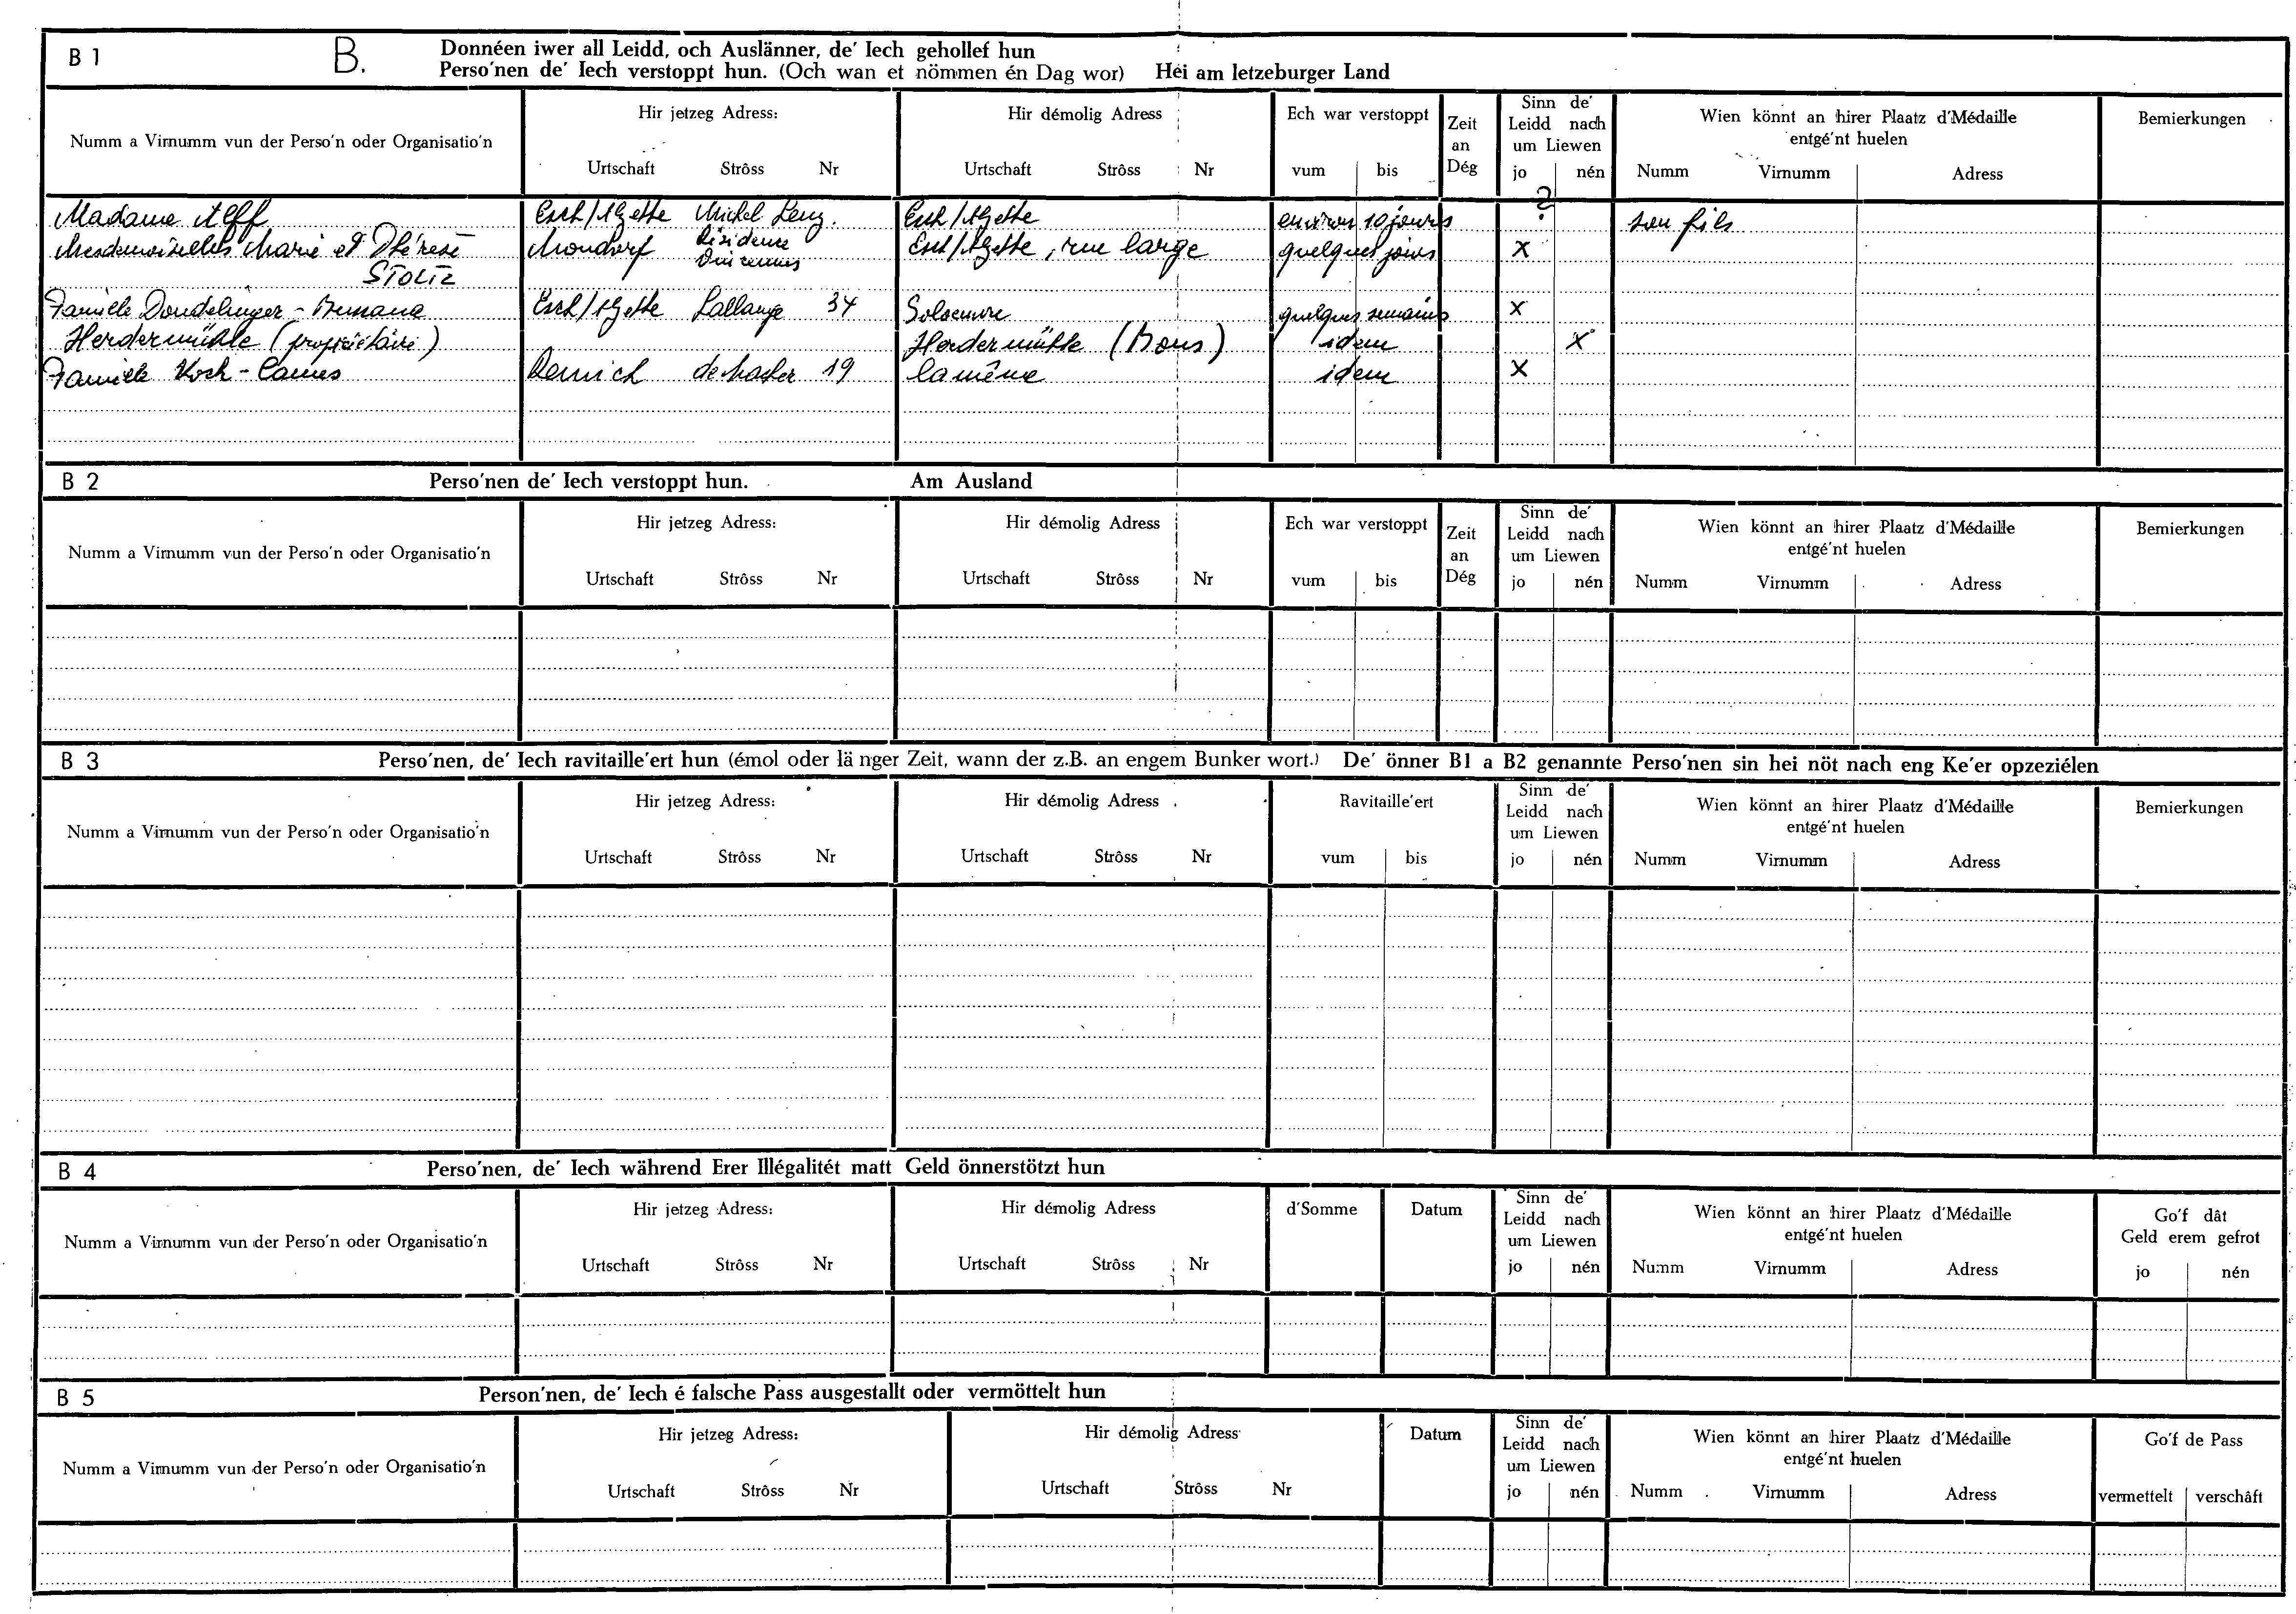 B 1 B. Donnéen iwer all Leidd, och Auslänner, de' Iech gehollef hun
Perso'nen de' Iech verstoppt hun. (Och wan et nömmen én Dag wor) Hei am letzeburger Land
Numm a Virnumm vun der Perso'n oder Organisatio'n
Hir jetzeg Adress:
Urtschaft Strôss Nr
Hir démolig Adress
Urtschaft Strôss Nr
Ech war verstoppt
vum bis
Zeit
an
Dég
Sinn de'
Leidd nach
um Liewen
jo nén
Wien könnt an hirer Plaatz d'Médaille
entgé'nt huelen
Numm Virnumm Adress
Bemierkungen
Madame Alff Esch/Alzette Michel Lenz. Esch/Alzette environ 10 jours ? son fils
Mesdemoiselles Marie et Thérèse Mondorf Résidence Esch/Alzette, rue large quelques jours x
STOLTZ
Famille Doudelinger - Esch/Alzette Lallange 34 Soleuvre quelques semaines x
Herdermühle (propriétaire) Herdermühle (Bous) idem x
Famille Koch - Remich de Macher 19 la même idem x
B 2 Perso'nen de' Iech verstoppt hun. Am Ausland
Numm a Virnumm vun der Perso'n oder Organisatio'n
Hir jetzeg Adress:
Urtschaft Strôss Nr
Hir démolig Adress
Urtschaft Strôss Nr
Ech war verstoppt
vum bis
Zeit
an
Dég
Sinn de'
Leidd nach
um Liewen
jo nén
Wien könnt an hirer Plaatz d'Médaille
entgé'nt huelen
Numm Virnumm Adress
Bemierkungen
B 3 Perso'nen, de' Iech ravitaille'ert hun (émol oder länger Zeit, wann der z.B. an engem Bunker wort.) De' önner B1 a B2 genannte Perso'nen sin hei nöt nach eng Ke'er opzeziélen
Numm a Virnumm vun der Perso'n oder Organisatio'n
Hir jetzeg Adress:
Urtschaft Strôss Nr
Hir démolig Adress
Urtschaft Strôss Nr
Ravitaille'ert
vum bis
Sinn de'
Leidd nach
um Liewen
jo nén
Wien könnt an hirer Plaatz d'Médaille
entgé'nt huelen
Numm Virnumm Adress
Bemierkungen
B 4 Perso'nen, de' Iech während Erer Illégalitét matt Geld önnerstötzt hun
Numm a Virnumm vun der Perso'n oder Organisatio'n
Hir jetzeg Adress:
Urtschaft Strôss Nr
Hir démolig Adress
Urtschaft Strôss Nr
d'Somme
Datum
Sinn de'
Leidd nach
um Liewen
jo nén
Wien könnt an hirer Plaatz d'Médaille
entgé'nt huelen
Numm Virnumm Adress
Go'f dât
Geld erem gefrot
jo nén
B 5 Person'nen, de' Iech é falsche Pass ausgestallt oder vermöttelt hun
Numm a Virnumm vun der Perso'n oder Organisatio'n
Hir jetzeg Adress:
Urtschaft Strôss Nr
Hir démolig Adress
Urtschaft Strôss Nr
Datum
Sinn de'
Leidd nach
um Liewen
jo nén
Wien könnt an hirer Plaatz d'Médaille
entgé'nt huelen
Numm Virnumm Adress
Go'f de Pass
vermettelt verschâft